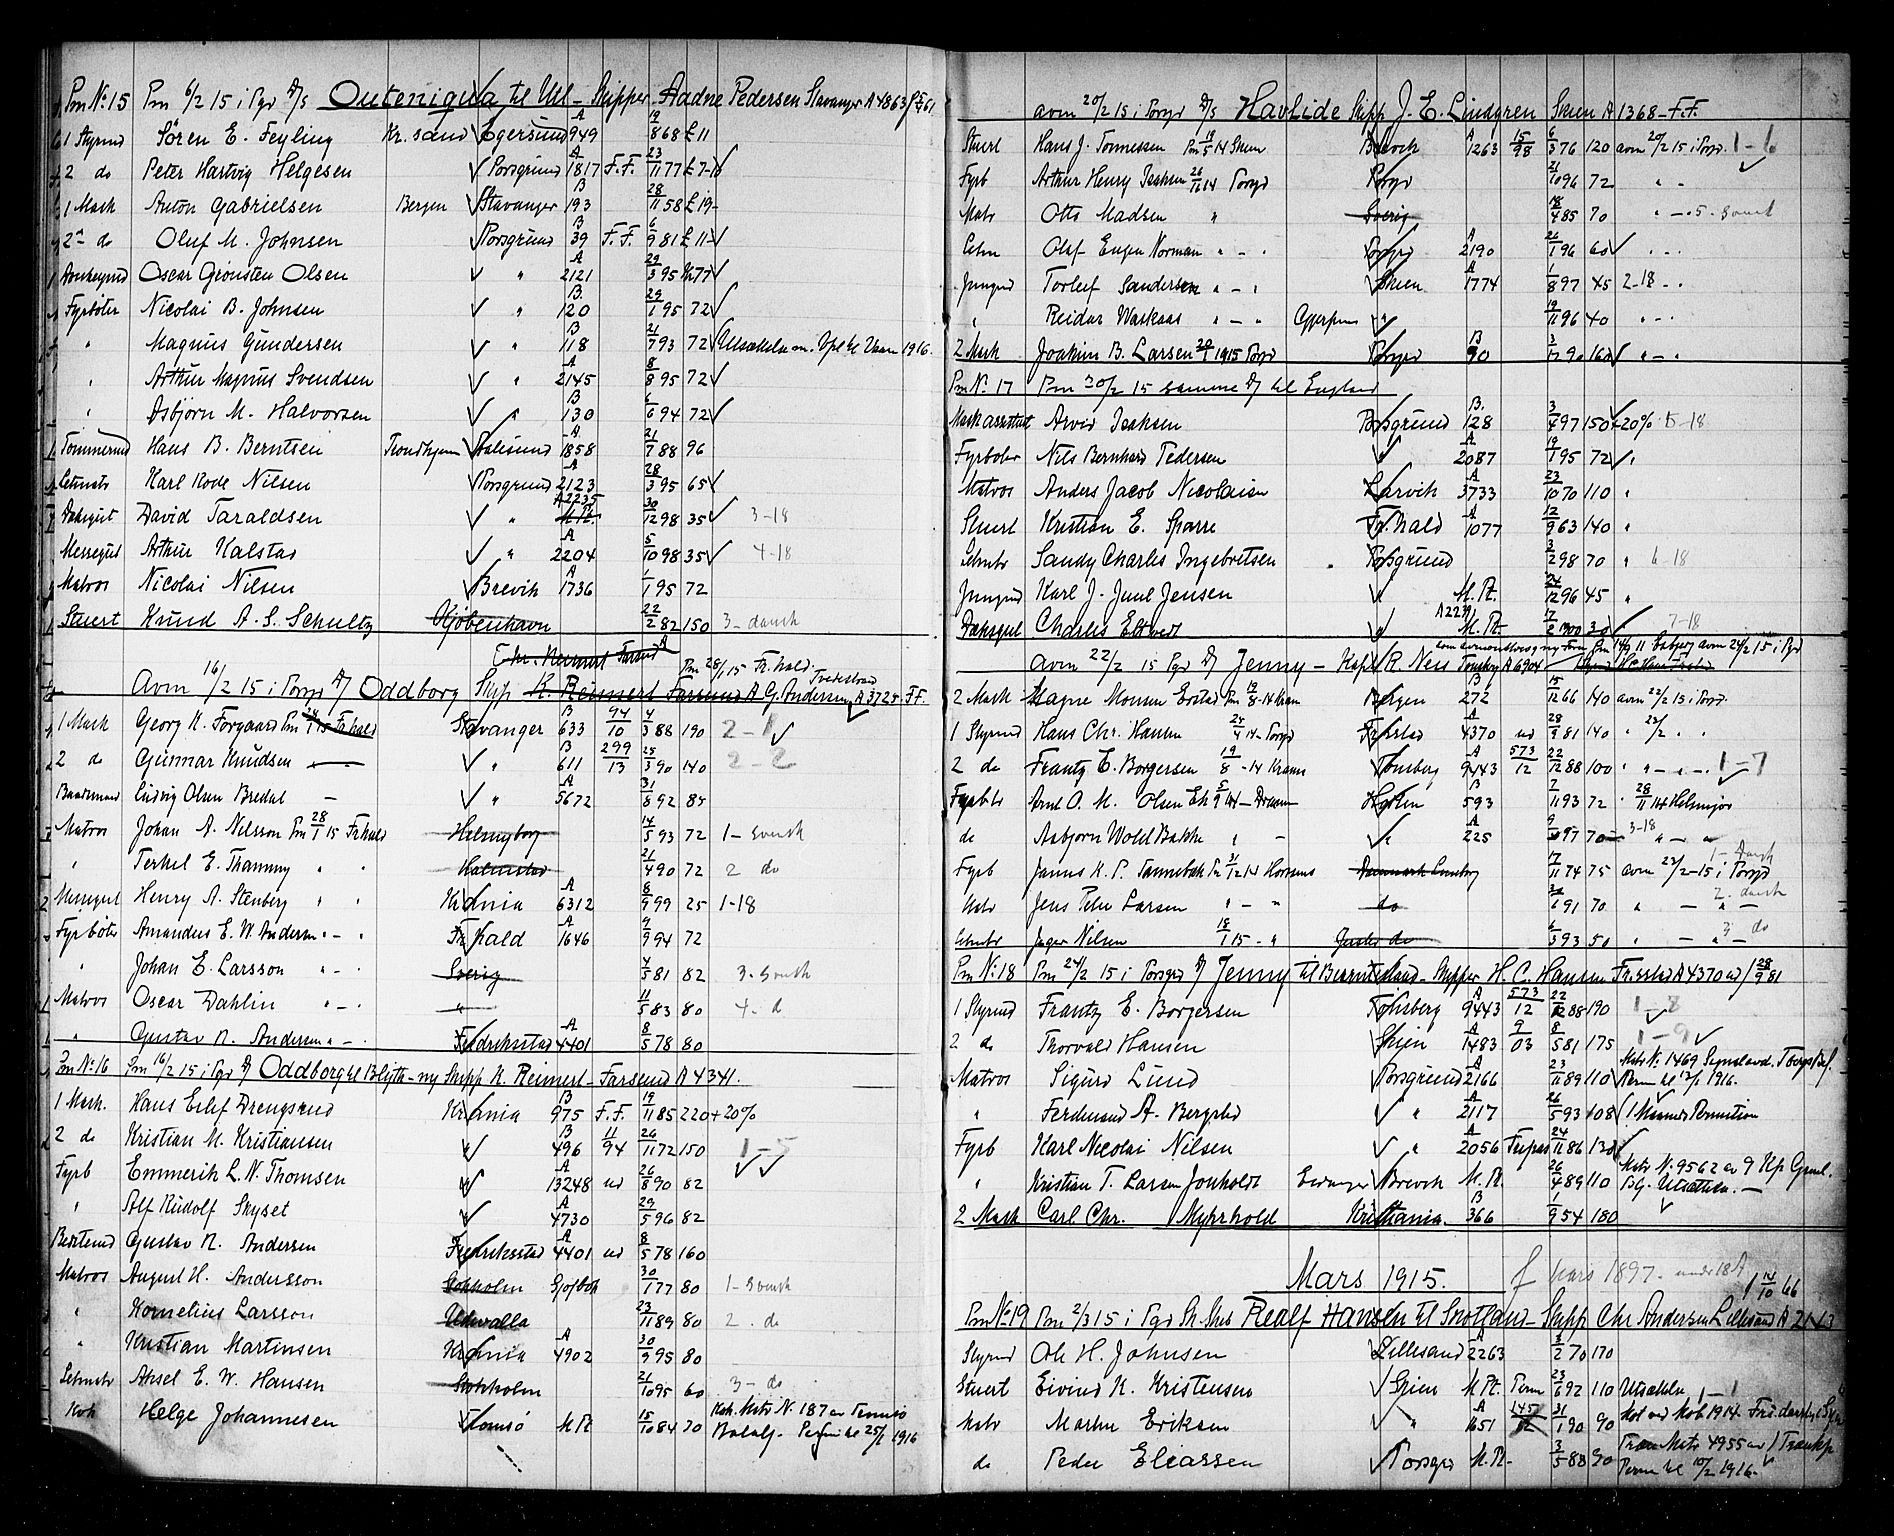 Pm No 15 Pm 6/2 15 i Pgr D/S Outeniqua til Utl - Skipper Aadne Pedersen Stavanger A 4863
1 Styrmd Sören E. Feyling Kr.sand Egersund A 949 19/8 68 £ 11
2 do Peter Hartvig Helgesen Porsgrund A 1817 F.F. 23/11 77 £ 7-10
1 Mask Anton Gabrielsen Bergen Stavanger B 193 28/11 58 £ 19-
2 do Oluf M. Johnsen Porsgrund B 39 F.F. 6/9 81 £ 11-
Oscar Grönsten Olsen " A 2121 29/3 95 Kr 77
Fyrböter Nicolai B. Johnsen " B 120 29/1 95 72
" Magnus Gundersen " B 118 21/7 93 72 Utsættelse m. Vpl til Vaar 1916.
" Arthur Magnus Svendsen " A 2145 8/8 95 72
" Asbjörn M. Halvorsen " B 130 6/6 94 72
Tömmermd Hans B. Berntsen Trondhjem Aalesund A 1858 21/7 88 96
Letmatr Karl Rode Nilsen Porsgrund A 2123 28/3 95 65
Dæksgut David Taraldsen " A 2235 30/12 98 35 3-18
Messegut Arthur Kalstad " A 2204 5/10 98 35 4-18
Matros Nicolai Nilsen Brevik A 1736 1/1 95 72
Stuert Knud A. S. Schultz Kjöbenhavn 22/2 82 150 3- dansk
Chr. Reimert Farsund A Pm 28/1 15 Fr.hald. Tvedestrand
Avm 16/2 15 i Porsgr D/S Oddborg Skip K. Reimert Farsund A G. Andersen A 3725 F.F.
1 Mask Georg K. Forgaard Pm 24/1 15 Fr.hald Stavanger B 633 94/10 4/3 88 190 2-1
2 do Gunnar Knudsen — " B 611 299/13 25/3 90 140 2-2
Baadsmand Ludvig Olsen Bredal — " A 5672 31/8 92 85
Matros Johan A. Nilsson Pm 28/1 15 Fr.hald Helsingborg 14/5 93 72 1- svensk
" Terkel E. Thammy " " Halmstad 21/4 90 72 2 do
Messegut Henry A. Stenberg " " Kr.ania A 6312 8/9 99 25 1-18
Fyrböter Amandus E. W. Andersen " - " Fr.hald A 1646 9/9 94 72
" Johan E. Larsson " - " Sverig 4/5 81 82 3. svensk
Matros Oscar Dahlin " - " " 11/5 83 80 4. d
" Gustav A. Andersen " - " Fredriksstad A 4401 8/5 78 80
Pm No 16 Pm 16/2 15 i Pgr D/S Oddborg til Blyth - ny Skipp K. Reimert - Farsund A 4341.
1 Mask. Hans Eilef Drengsrud Kr.ania B 975 F.F. 19/11 85 220 + 20%
2 do Kristian M. Kristiansen " B 496 11/94 26/11 72 150 1-5
Fyrb Emmerik L. N. Thomsen " A 13248 ud 26/8 90 82
" Alf Rudolf Skyset " A 4730 29/5 96 82
Gustav A. Andersen Fredriksstad A 4401 ud 8/5 78 160
Matros August H. Andersson Stokholm 30/1 77 80 1- svensk
" Kornelius Larsson Udevalla 23/11 89 80 2. do
" Kristian Martinsen Kr.ania A 4902 30/9 95 80
Letmatr Aksel E. W. Hansen Stokholm 21/10 95 60 3- do
Kok Helge Johannesen Tromsö M Rt 15/10 84 70 Kok. Matr N. 187 av Tromsö
Batalj. Permi til 25/1 1916
avm 20/2 15 i Porsgr D/S Havlide Skipp J. E. Lindgren Skien A 1368 - F.F.
Stuert Hans J. Tönnessen Pm 19/5 14 Skien Brevik A 1263 15/98 6/3 76 120 avm 20/2 15 i Porsgr. 1-6
Fyrb Arthur Henry Isaksen 26/11 14 Porsgr Porsgr 21/10 96 72 " -
Matr Otto Madsen " Sverig 18/4 85 70 " - 5. svensk
Letm Olaf Eugen Norman " - " Porsgr A 2190 26/1 96 60 " - "
Jungmd Torleif Sandersen " - " Skien A 1774 1/8 97 45 2-18 - "
" Reidar Waskaas " - " Gjerpen " 19/11 96 40 " - "
2 Mask Joakim B. Larsen 20/1 1915 Porsgr Porsgr B 90 160 " - "
Pm No. 17 Pm 20/2 15 samme D/S til England
Maskassistent Arvid Isaksen Porsgrund B. 128 3/4 97 150 + 20% 5-18
Fyrböter Nils Bernhard Pedersen " A 2087 19/1 95 72 "
Matros Anders Jacob Nicolaisen Larvik A 3733 23/10 70 110 "
Stuert Kristian E. Sparre Fr.hald A 1077 12/9 63 140 "
Letmtr Sandy Charles Ingebretsen Porsgrund 3/2 98 70 " 6-18
Jungmd Karl J. Juul Jensen " M. Rt. 24/12 96 45 "
Dæksgut Charles Eltvedt " A 2271 M. Rt. 17/2 1900 30 7-18
avm 22/2 15 Pgr D/S Jenny - Kapt R. Ness Tönsberg A 6904
2 Mask Magne Monsen Erstad Pm 19/8-14 Kr.ania Bergen B 272 15/12 66 140 avm 22/2 15 i Porsgr.
1 Styrmd Hans Chr. Hansen 24/4 14 - Porsgr Fr.stad A 4370 ud 28/9 81 140 " 22/2 " "
2 do Frantz E. Borgersen 19/8 - 14 Kr.ania Tönsberg A 9443 573/12 22/12 88 100 " " - " - " 1-7
Fyrbtr Arnt O. M. Olsen Ek 5/9 14 - Drammen Horten B 593 7/11 93 72 " 28/11 14 Helsingör
do Asbjörn Wold Bakke " - " A 225 97 70 - 3-18 " - "
Fyrb Jannus K. P. Sannebæk Pm 31/12 14 Horsens Danmark 17/11 74 75 avm 22/2-15 i Porsgr 1- Dansk
Matr Jens Peter Larsen " - " do 6 91 70 " - " - 2- dansk
Letmtr Jeger Nilsen 18/1 15 - " do 6/3 93 50 " - " - 3 do
Pm No. 18 Pm 24/2 15 i Porsgr D/S Jenny til - Skipper H. C. Hansen Fr.stad A 4370 ud 28/9 81
1 Styrmd Frantz E. Borgersen Tönsberg A 9443 573/12 22/12 88 190 1-8
2 do Thorvald Hansen Skien A 1483 9/03 8/5 81 175 1-9
Matros Sigurd Lund Porsgrund A 2166 23/11 89 110 Matr No. 1469 Signalavd.
Perm til 12/1 1916.
" Ferdinand A. Bergsted " A 2117 26/5 93 108 1 Maaneds Permition
Fyrb Karl Nicolai Nilsen " A 2056 Fripas 24/11 86 130
" Kristian T. Larsen Jönholdt Brevik M. Rt. 26/4 89 110 Matr No. 9562 av 9 Kp
Utsættelse. -
2 Mask Carl Chr. Myhrhold Kristiania. B 366 1/9 54 180
Mars 1915. f mars 1897. under 18 A
14/10 66
Pm No 19 Pm 2/3 15 i Pgr Sk. Realf Hansen til Skotland - Skipp Chr Andersen Lillesand A 2143
Styrmd Ole H. Johnsen Lillesand A 2263 3/2 70 170
Stuert Eivind K. Kristensen Skien M Rt. Perm 23/6 92 110 Utsættelse 1-1
Matr Martin Eriksen " A 1651 145/12 31/1 90 90
do Peder Eliassen Porsgr M. Rt. - 3/5 88 90 Matr 4955 av 1
Perm til 10/2 1916.